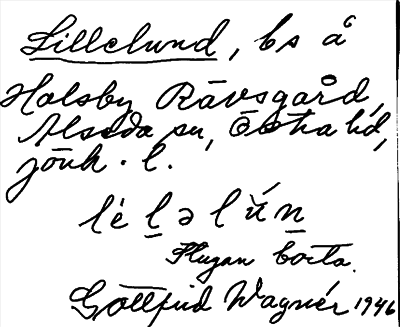 Lillelund, bs å
Holsby Rävsgård,
Alseda sn, Östra hd,
jönk. l.
lè l̲ə lŭ́n̲
Stugan borta.
Gottfrid Wagnér 1946